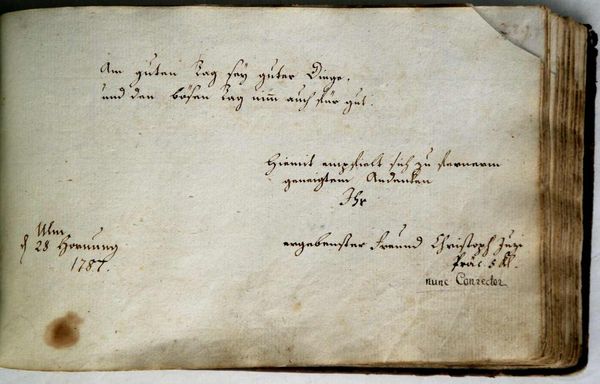 Am guten Tag sey guter Dinge,
und den bösen Tag nim̅ auch für gut.
Hiemit empfielt sich zu fernerm
geneigtem Andenken
Ihr
ergebenster Freund Christoph
Präc. 5 Kl.
nunc Conrector
Ulm
28 Hornung
1787.